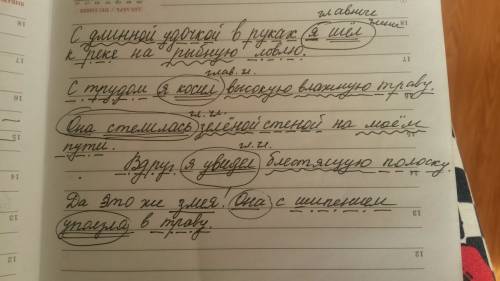 главные
члены
С длинной удочкой в руках я шёл
к реке на рыбную ловлю.
глав. ч.
С трудом я косил высокую влажную траву.
гл. чл.
Она стелилась зелёной стеной на моём
пути.
гл. ч.
Вдруг я увидел блестящую полоску.
Да это же змея! Она с шипением
уползла в траву.
18
17
16
15
14
13
12